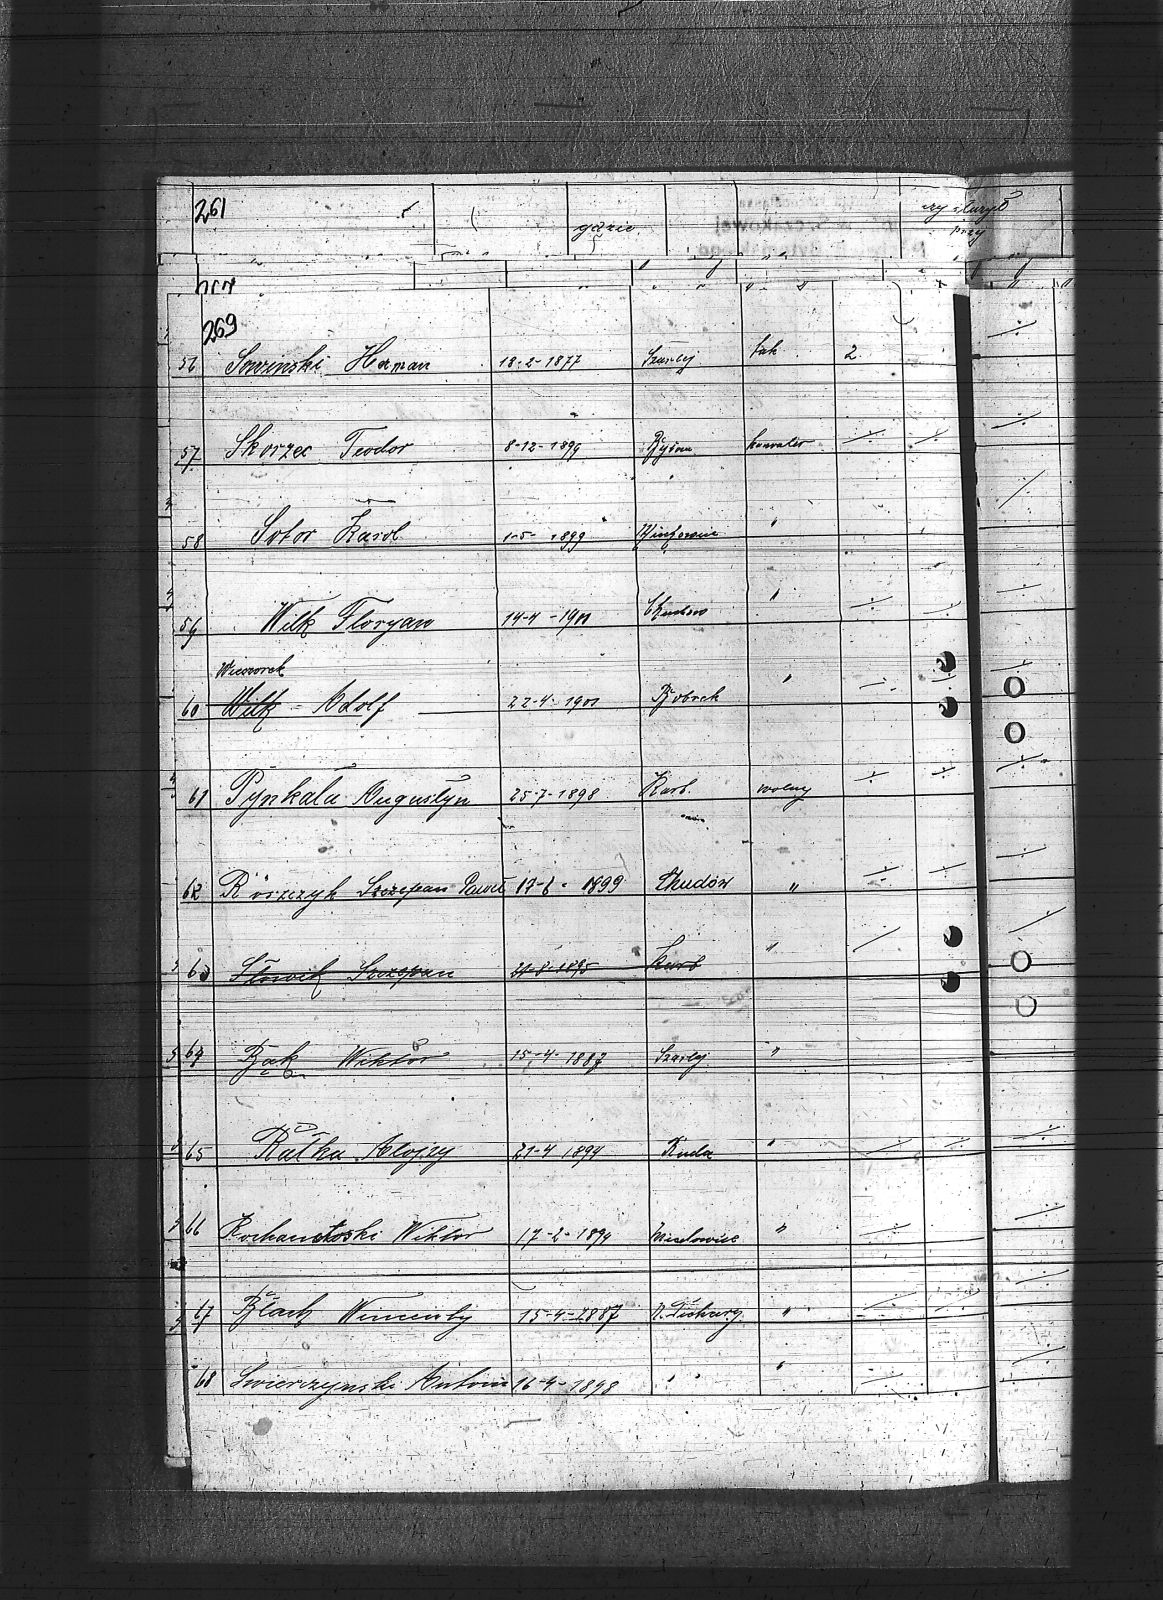 261
gdzie
czy służył
przy
269
56 Sowinski Herman 18-2-1877 Szarlej tak 2
57 Skorzec Teodor 8-12-1899 Bytom kawaler
58 Sotor Karol 1-5-1899 "
59 Wilk Floryan 14-4-1901 Chudow "
Wieczorek
60 Wilk - Adolf 22-4-1901 Bobrek "
61 Pynkala Augustyn 25-7-1898 Karb. wolny
62 Roszczyk Szczepan Paweł 17-6-1899 Chudów "
63 Słowik Szczepan 21-8-1895 Karb "
64 Bąk Wiktor 15-4-1887 Szarlej "
65 Rutka Alojzy 21-4-1894 Ruda "
66 Kochanetoski Wiktor 17-2-1894 "
67 Blach Wincenty 15-4-1887 "
68 Swierczynski Antoni 16-4-1898 " " "